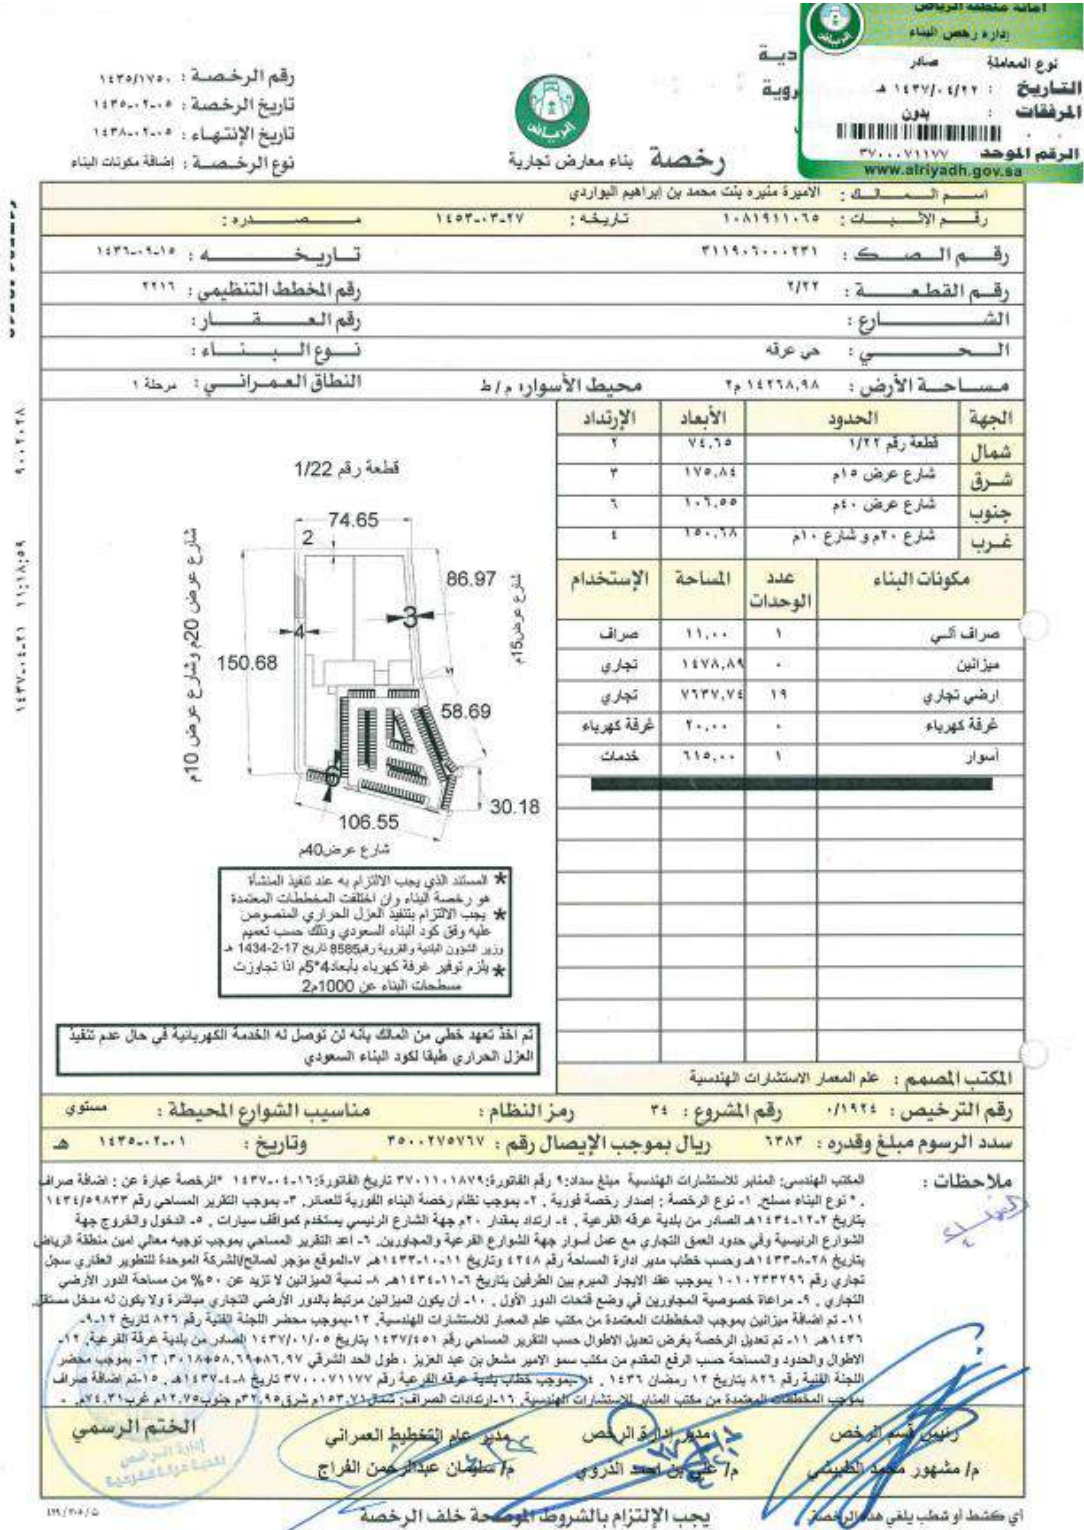 أمانة منطقة الرياض
إدارة رخص البناء
نوع المعاملة صادر
التاريخ : ١٤٣٧/٠٤/٢٢ هـ
المرفقات : بدون
الرقم الموحد ٣٧٠٠٠٧١١٧٧
www.alriyadh.gov.sa
دية
روية
رقم الرخصة : ١٤٣٥/١٧٥٠
تاريخ الرخصة : ١٤٣٥-٠٢-٠٥
تاريخ الإنتهاء : ١٤٣٨-٠٢-٠٥
نوع الرخصة : إضافة مكونات البناء
الرياض
رخصة بناء معارض تجارية
اسم المالك : الاميرة منيره بنت محمد بن إبراهيم البواردي
رقم الإثبات : ١٠٨١٩١١٠٦٥ تاريخه : ١٤٥٣-٠٣-٢٧ مصدره :
رقم الصك : ٣١١٩٠٦٠٠٠٢٣١ تاريخه : ١٤٣٦-٠٩-١٥
رقم القطعة : ٢/٢٢ رقم المخطط التنظيمي : ٢٢١٦
الشارع : رقم العقار :
الحي : حي عرقه نوع البناء :
مساحة الأرض : ١٤٢٦٨,٩٨ م٢ محيط الأسوار: م/ط النطاق العمراني : مرحلة ١
الجهة الحدود الأبعاد الإرتداد
شمال قطعة رقم ١/٢٢ ٧٤,٦٥ ٢
شرق شارع عرض ١٥م ١٧٥,٨٤ ٣
جنوب شارع عرض ٤٠م ١٠٦,٥٥ ٦
غرب شارع ٢٠م و شارع ١٠م ١٥٠,٦٨ ٤
مكونات البناء عدد الوحدات المساحة الإستخدام
صراف آلي ١ ١١,٠٠ صراف
ميزانين ٠ ١٤٧٨,٨٩ تجاري
ارضي تجاري ١٩ ٧٦٣٧,٧٤ تجاري
غرفة كهرباء ٠ ٢٠,٠٠ غرفة كهرباء
أسوار ١ ٦١٥,٠٠ خدمات
قطعة رقم 1/22
74.65
2
86.97
3
4
شارع عرض15م
شارع عرض 20م وشارع عرض 10م
150.68
58.69
6
30.18
106.55
شارع عرض40م
* المستند الذي يجب الالتزام به عند تنفيذ المنشأة
هو رخصة البناء وان اختلفت المخططات المعتمدة
* يجب الالتزام بتنفيذ العزل الحراري المنصوص
عليه وفق كود البناء السعودي وذلك حسب تعميم
وزير الشؤون البلدية والقروية رقم8585 تاريخ 17-2-1434 هـ
* يلزم توفير غرفة كهرباء بأبعاد4*5م اذا تجاوزت
مسطحات البناء عن 1000م2
تم اخذ تعهد خطي من المالك بأنه لن توصل له الخدمة الكهربائية في حال عدم تنفيذ
العزل الحراري طبقا لكود البناء السعودي
المكتب المصمم : علم المعمار الاستشارات الهندسية
رقم الترخيص : ٠/١٩٢٤ رقم المشروع : ٣٤ رمز النظام : مناسيب الشوارع المحيطة : مستوي
سدد الرسوم مبلغ وقدره : ٦٣٨٣ ريال بموجب الإيصال رقم : ٣٥٠٠٢٧٥٧٦٧ وتاريخ : ١٤٣٥-٠٢-٠١ هـ
ملاحظات : المكتب الهندسي: المنابر للاستشارات الهندسية مبلغ سداد:٩ رقم الفاتورة:٣٧٠١١٠١٨٧٩ تاريخ الفاتورة:١٦-٠٤-١٤٣٧ *الرخصة عبارة عن : اضافة صراف
. * نوع البناء مسلح. ١- نوع الرخصة : إصدار رخصة فورية . ٢- بموجب نظام رخصة البناء الفورية للعمائر. ٣- بموجب التقرير المساحي رقم ١٤٣٤/٥٩٨٣٣
بتاريخ ٢-١٢-١٤٣٤هـ الصادر من بلدية عرقه الفرعية . ٤- ارتداد بمقدار ٢٠م جهة الشارع الرئيسي يستخدم كمواقف سيارات . ٥- الدخول والخروج جهة
الشوارع الرئيسية وفي حدود العمق التجاري مع عمل أسوار جهة الشوارع الفرعية والمجاورين. ٦- اعد التقرير المساحي بموجب توجيه معالي امين منطقة الرياض
بتاريخ ٢٨-٨-١٤٣٣هـ وحسب خطاب مدير ادارة المساحة رقم ٤٢٤٨ وتاريخ ١١-١٠-١٤٣٣هـ ٧-الموقع مؤجر لصالح/الشركة الموحدة للتطوير العقاري سجل
تجاري رقم ١٠١٠٢٣٣٢٩٦ بموجب عقد الايجار المبرم بين الطرفين بتاريخ ٦-١١-١٤٣٤هـ ٨- نسبة الميزانين لا تزيد عن ٥٠% من مساحة الدور الأرضي
التجاري . ٩- مراعاة خصوصية المجاورين في وضع فتحات الدور الأول . ١٠- أن يكون الميزانين مرتبط بالدور الأرضي التجاري مباشرة ولا يكون له مدخل مستقل
١١- تم اضافة ميزانين بموجب المخططات المعتمدة من مكتب علم المعمار للاستشارات الهندسية. ١٢-بموجب محضر اللجنة الفنية رقم ٨٢٦ تاريخ ١٢-٩-
١٤٣٦هـ ١١- تم تعديل الرخصة بغرض تعديل الاطوال حسب التقرير المساحي رقم ١٤٣٧/٤٥١ بتاريخ ١٤٣٧/٠١/٠٥ الصادر من بلدية عرقة الفرعية. ١٢-
الاطوال والحدود والمساحة حسب الرفع المقدم من مكتب سمو الامير مشعل بن عبد العزيز ، طول الحد الشرقي ٨٦,٩٧+٥٨,٦٩+٣٠,١٨. ١٣- بموجب محضر
اللجنة الفنية رقم ٨٢٦ بتاريخ ١٢ رمضان ١٤٣٦ . بموجب خطاب بلدية عرقه الفرعية رقم ٣٧٠٠٠٧١١٧٧ تاريخ ٨-٤-١٤٣٧هـ . ١٥-تم اضافة صراف
بموجب المخططات المعتمدة من مكتب المنابر للاستشارات الهندسية. ١٦-ارتدادات الصراف: شمال١٥٣,٧١م شرق٣٢,٩٥م جنوب١٢,٧٥م غرب٧٤,٣١م.
رئيس قسم الرخص مدير إدارة الرخص مدير عام التخطيط العمراني الختم الرسمي
م/ مشهور محمد الطبيشي م/ علي بن احمد الدروي م/ سليمان عبدالرحمن الفراج
إدارة الرخص
أي كشط أو شطب يلغي هذه الرخصة يجب الإلتزام بالشروط الموضحة خلف الرخصة
١٤٣٧-٠٤-٢١ ١١:١٨:٥٩ ٩٠٠٢٠٢٨